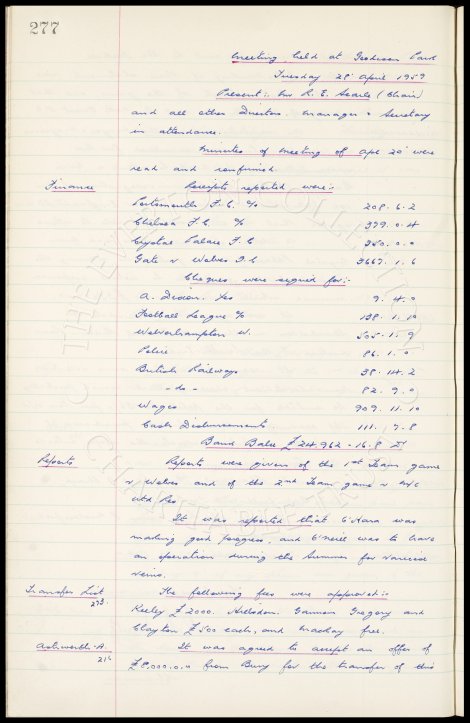 277
Meeting held at Goodison Park
Tuesday 28 April 1959
Present:- Mr R. E. Searle (Chair)
and all other Directors. Manager & Secretary
in attendance.
Minutes of Meeting of Apl 20 were
read and confirmed.
Finance Receipts reported were:-
Portsmouth F.C. % 208. 6. 2
Chelsea F.C. % 379. 0. 4
Crystal Palace F.C 350. 0. 0
Gate v Wolves F.C 3667. 1. 6
Cheques were signed for:-
A. Dixon. 9. 4. 0
Football League % 138. 1. 10
Wolverhampton W. 505. 1. 9
Police 86. 1. 0
British Railways 38. 14. 2
- do - 82. 9. 0
Wages 909. 11. 10
Cash Disbursements. 111. 7. 8
Bank Balce £24,962 - 16. 8
Reports Reports were given of the 1st Team game
v Wolves and of the 2nd Team game v M/C
Utd Res.
It was reported that O'Hara was
making good progress, and O'Neill was to have
an operation during the Summer for varicose
veins.
Transfer List The following fees were approved:-
Keeley £2000. Gannon Gregory and
Clayton £500 each, and Mackay free.
Ashworth. A. It was agreed to accept an offer of
£8,000.0.0 from Bury for the transfer of this
THE EVERTON COLLECTION
CHARITABLE TRUST